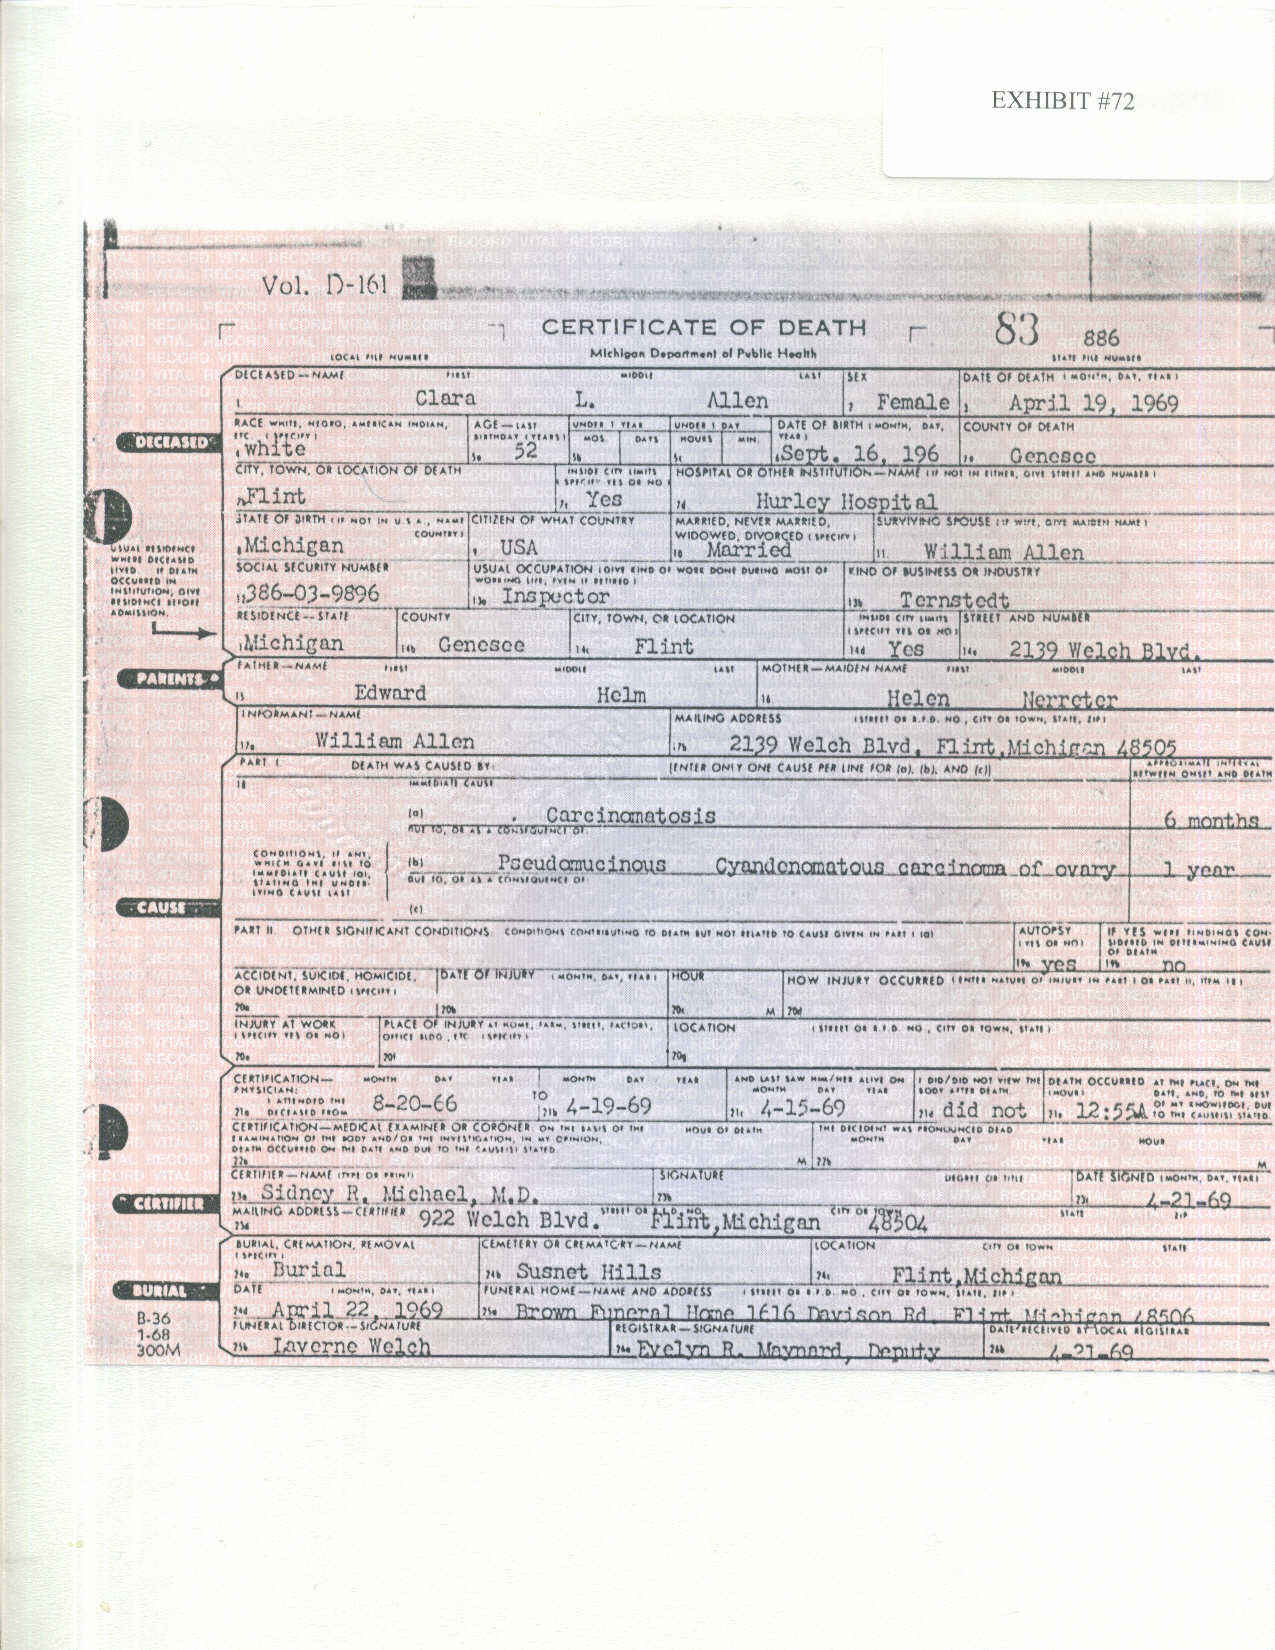 EXHIBIT #72
Vol. D-161
CERTIFICATE OF DEATH 83 886
LOCAL FILE NUMBER Michigan Department of Public Health STATE FILE NUMBER
DECEASED—NAME FIRST MIDDLE LAST SEX DATE OF DEATH (MONTH, DAY, YEAR)
1 Clara L. Allen 2 Female 3 April 19, 1969
RACE WHITE, NEGRO, AMERICAN INDIAN, ETC. (SPECIFY) AGE—LAST BIRTHDAY (YEARS) UNDER 1 YEAR MOS. DAYS UNDER 1 DAY HOURS MIN. DATE OF BIRTH (MONTH, DAY, YEAR) COUNTY OF DEATH
DECEASED
4 white 5a 52 5b 5c 6 Sept. 16, 196 7a Genesee
CITY, TOWN, OR LOCATION OF DEATH INSIDE CITY LIMITS (SPECIFY YES OR NO) HOSPITAL OR OTHER INSTITUTION—NAME (IF NOT IN EITHER, GIVE STREET AND NUMBER)
7b Flint 7c Yes 7d Hurley Hospital
STATE OF BIRTH (IF NOT IN U.S.A., NAME COUNTRY) CITIZEN OF WHAT COUNTRY MARRIED, NEVER MARRIED, WIDOWED, DIVORCED (SPECIFY) SURVIVING SPOUSE (IF WIFE, GIVE MAIDEN NAME)
8 Michigan 9 USA 10 Married 11. William Allen
USUAL RESIDENCE WHERE DECEASED LIVED. IF DEATH OCCURRED IN INSTITUTION, GIVE RESIDENCE BEFORE ADMISSION.
SOCIAL SECURITY NUMBER USUAL OCCUPATION (GIVE KIND OF WORK DONE DURING MOST OF WORKING LIFE, EVEN IF RETIRED) KIND OF BUSINESS OR INDUSTRY
12 386-03-9896 13a Inspector 13b Ternstedt
RESIDENCE—STATE COUNTY CITY, TOWN, OR LOCATION INSIDE CITY LIMITS (SPECIFY YES OR NO) STREET AND NUMBER
Michigan 14b Genesee 14c Flint 14d Yes 14e 2139 Welch Blvd.
FATHER—NAME FIRST MIDDLE LAST MOTHER—MAIDEN NAME FIRST MIDDLE LAST
PARENTS
15 Edward Helm 16 Helen Nerreter
INFORMANT—NAME MAILING ADDRESS (STREET OR R.F.D. NO., CITY OR TOWN, STATE, ZIP)
17a William Allen 17b 2139 Welch Blvd. Flint,Michigan 48505
PART I. DEATH WAS CAUSED BY: [ENTER ONLY ONE CAUSE PER LINE FOR (a), (b), AND (c)] APPROXIMATE INTERVAL BETWEEN ONSET AND DEATH
18 IMMEDIATE CAUSE
(a) Carcinomatosis 6 months
DUE TO, OR AS A CONSEQUENCE OF:
CONDITIONS, IF ANY, WHICH GAVE RISE TO IMMEDIATE CAUSE (a), STATING THE UNDERLYING CAUSE LAST
(b) Pseudomucinous Cyandenomatous carcinoma of ovary 1 year
DUE TO, OR AS A CONSEQUENCE OF:
CAUSE
(c)
PART II. OTHER SIGNIFICANT CONDITIONS: CONDITIONS CONTRIBUTING TO DEATH BUT NOT RELATED TO CAUSE GIVEN IN PART I (a) AUTOPSY (YES OR NO) IF YES WERE FINDINGS CONSIDERED IN DETERMINING CAUSE OF DEATH
19a yes 19b no
ACCIDENT, SUICIDE, HOMICIDE, OR UNDETERMINED (SPECIFY) DATE OF INJURY (MONTH, DAY, YEAR) HOUR HOW INJURY OCCURRED (ENTER NATURE OF INJURY IN PART I OR PART II, ITEM 18)
20a 20b 20c M 20d
INJURY AT WORK (SPECIFY YES OR NO) PLACE OF INJURY AT HOME, FARM, STREET, FACTORY, OFFICE BLDG., ETC. (SPECIFY) LOCATION (STREET OR R.F.D. NO., CITY OR TOWN, STATE)
20e 20f 20g
CERTIFICATION— MONTH DAY YEAR MONTH DAY YEAR AND LAST SAW HIM/HER ALIVE ON MONTH DAY YEAR I DID/DID NOT VIEW THE BODY AFTER DEATH. DEATH OCCURRED (HOUR) AT THE PLACE, ON THE DATE, AND, TO THE BEST OF MY KNOWLEDGE, DUE TO THE CAUSE(S) STATED.
PHYSICIAN: I ATTENDED THE DECEASED FROM
21a 8-20-66 TO 21b 4-19-69 21c 4-15-69 21d did not 21e 12:55A
CERTIFICATION—MEDICAL EXAMINER OR CORONER: ON THE BASIS OF THE EXAMINATION OF THE BODY AND/OR THE INVESTIGATION, IN MY OPINION, DEATH OCCURRED ON THE DATE AND DUE TO THE CAUSE(S) STATED. HOUR OF DEATH THE DECEDENT WAS PRONOUNCED DEAD MONTH DAY YEAR HOUR
22a M 22b M
CERTIFIER—NAME (TYPE OR PRINT) SIGNATURE DEGREE OR TITLE DATE SIGNED (MONTH, DAY, YEAR)
CERTIFIER
23a Sidney R. Michael, M.D. 23b 23c 4-21-69
MAILING ADDRESS—CERTIFIER STREET OR R.F.D. NO. CITY OR TOWN STATE ZIP
23d 922 Welch Blvd. Flint,Michigan 48504
BURIAL, CREMATION, REMOVAL (SPECIFY) CEMETERY OR CREMATORY—NAME LOCATION CITY OR TOWN STATE
24a Burial 24b Susnet Hills 24c Flint,Michigan
BURIAL
DATE (MONTH, DAY, YEAR) FUNERAL HOME—NAME AND ADDRESS (STREET OR R.F.D. NO., CITY OR TOWN, STATE, ZIP)
24d April 22, 1969 25a Brown Funeral Home 1616 Davison Rd. Flint Michigan 48506
B-36
1-68
300M
FUNERAL DIRECTOR—SIGNATURE REGISTRAR—SIGNATURE DATE RECEIVED BY LOCAL REGISTRAR
25b Laverne Welch 26a Evelyn R. Maynard, Deputy 26b 4-21-69